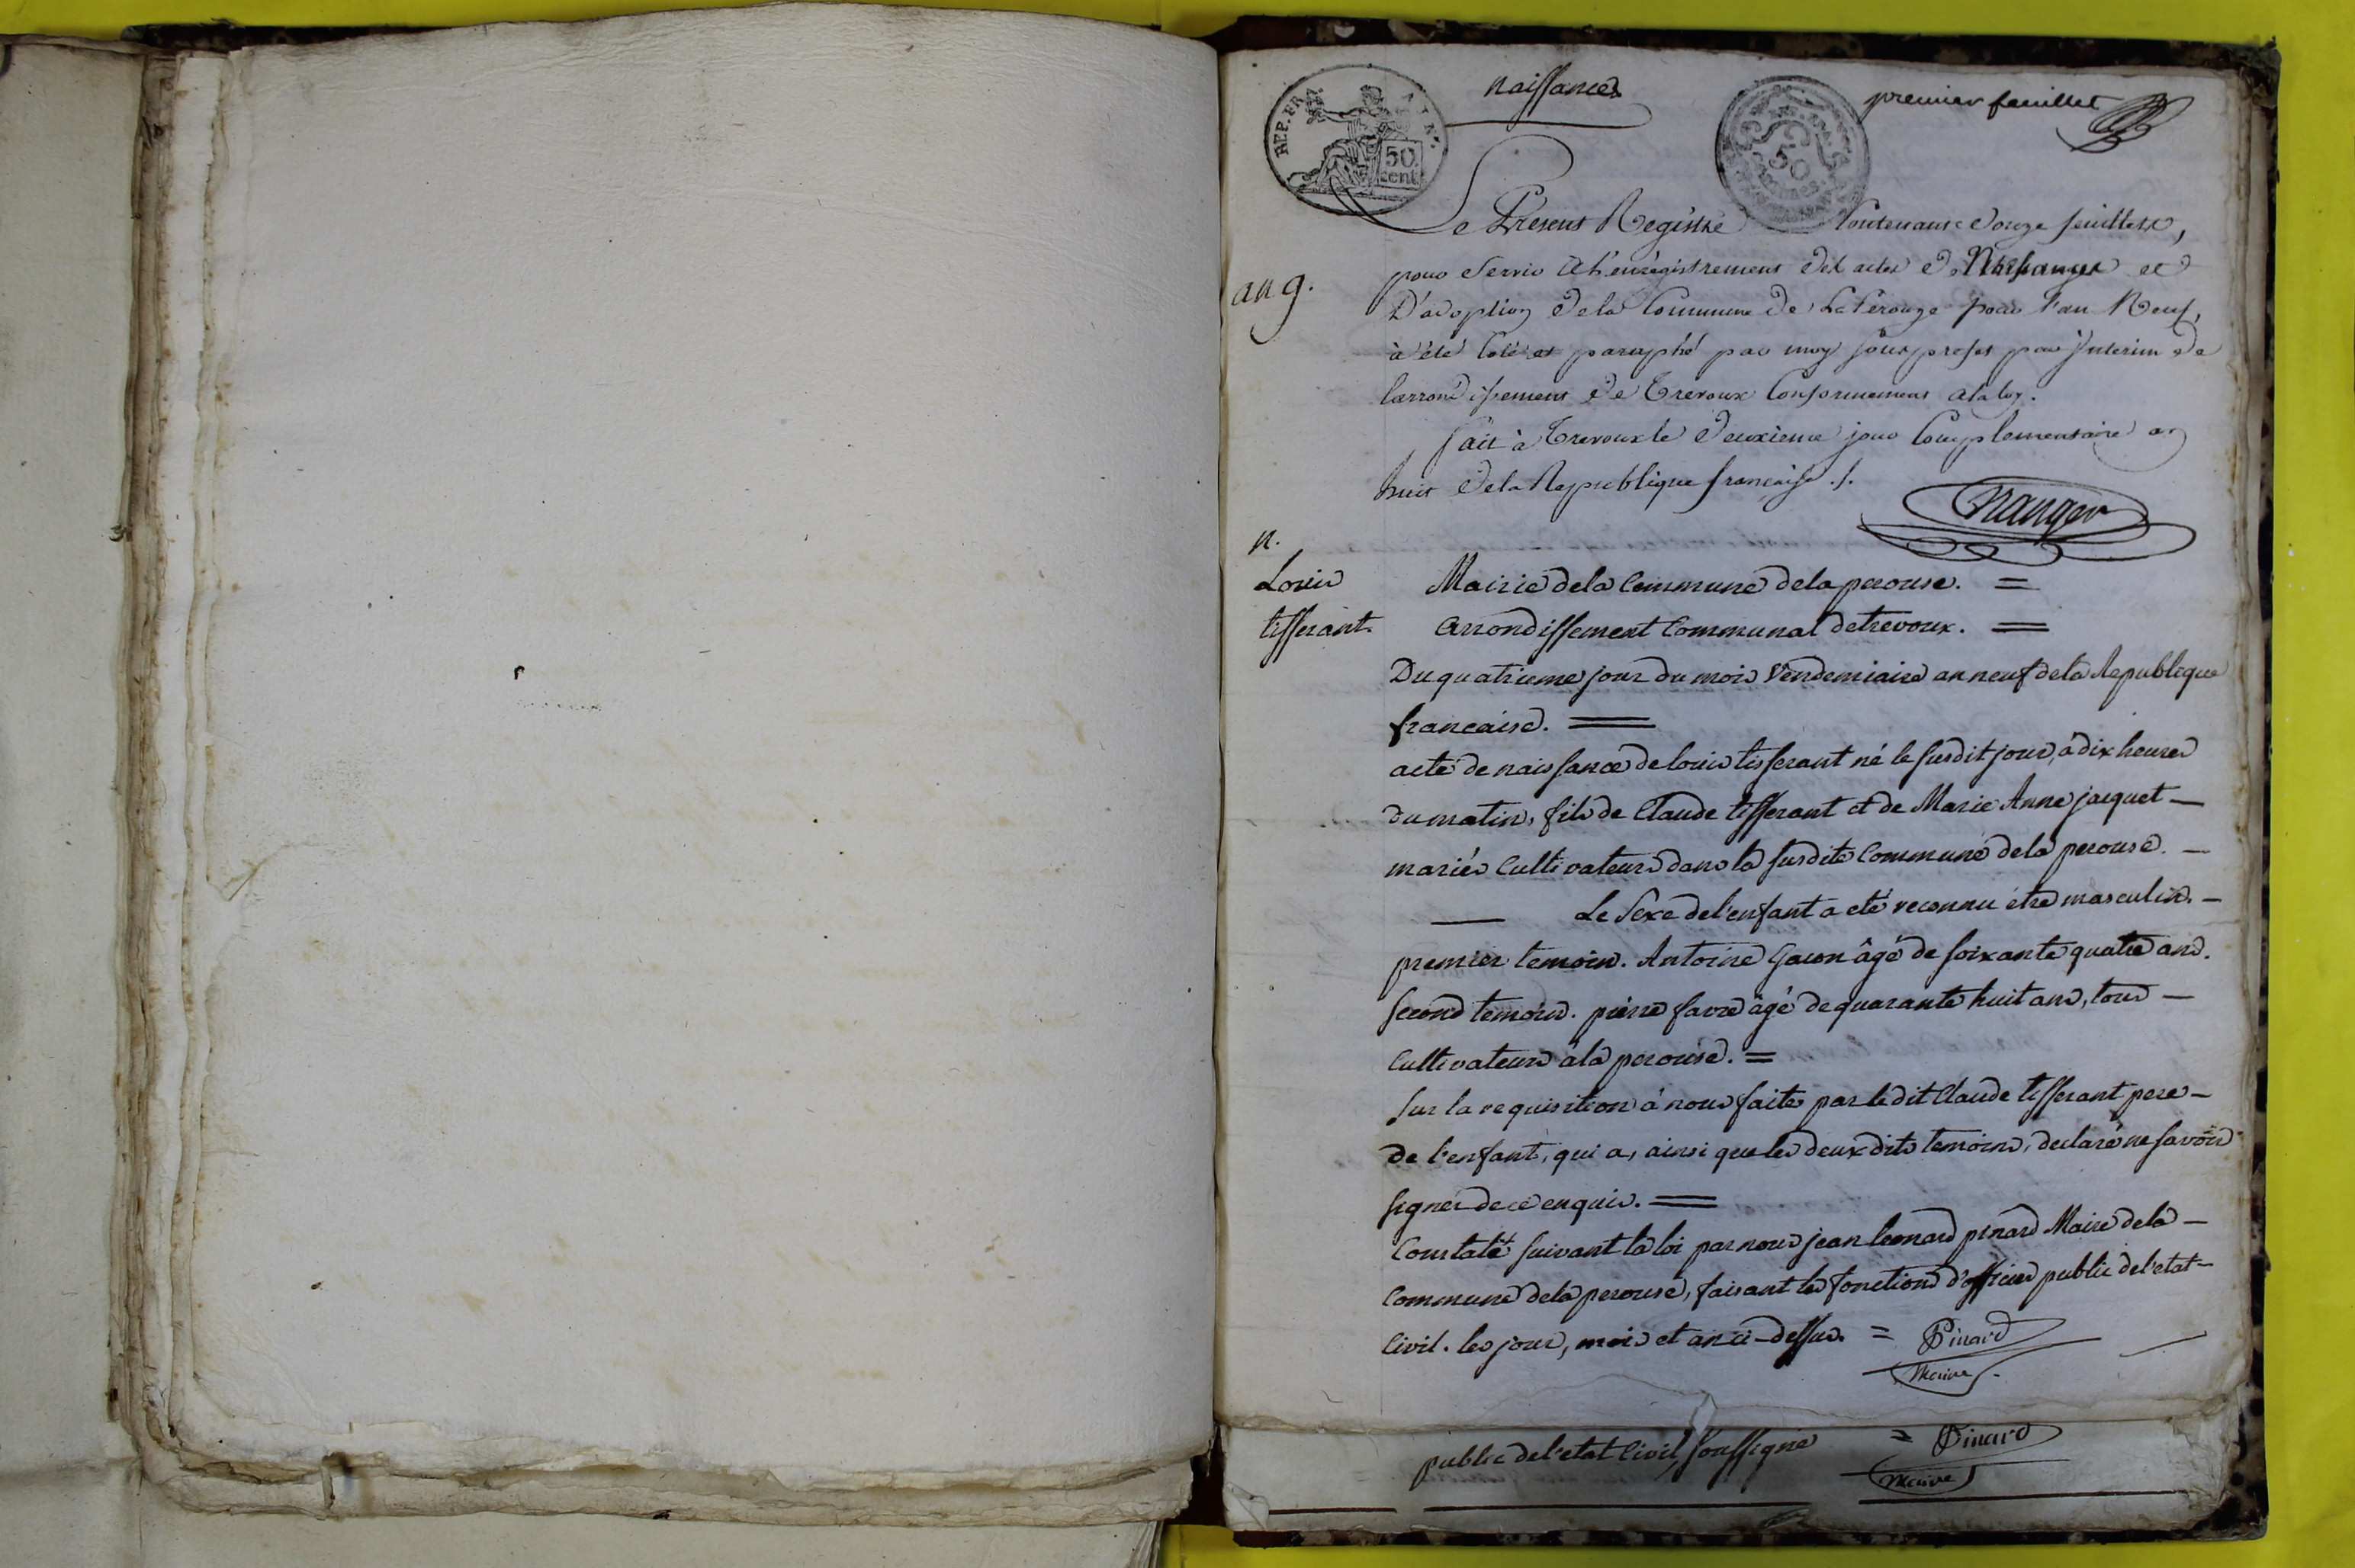 naissances
premier feuillet
REP. FRA
50
cent
50
centimes
Le Present Registre Contenant Douze feuillets,
an 9.
pour servir a l'enregistrement des actes de Naissances et
D'adoption de la Commune de La Pérouze pour l'an Neuf,
à été Coté et paraphé par moy sous prefet par Interim de
l'arrondissement de Trevoux Conformement a la loy.
fait à Trevoux le Deuxieme jour Complementaire an
huit de la Republique francaise ./.
n.
Louis
tisserant.
Mairie de la Commune de la perouse. =
Arrondissement Communal de trevoux. =
Du quatrieme jour du mois Vendemiaire an neuf de la Republique
francaise. =
acte de naissance de louis tisserant né le susdit jour, à dix heures
du matin, fils de Claude tisserant et de Marie Anne jacquet —
mariés Cultivateurs dans la susdite Commune de la perouse. —
— Le Sexe de l'enfant a eté reconnu etre masculin. —
premier temoin. Antoine Gacon âgé de soixante quatre ans.
second temoin. pierre favre âgé de quarante huit ans, tous —
Cultivateurs à la perouse. =
sur la requisition à nous faite par le dit Claude tisserant pere —
de l'enfant, qui a, ainsi que les deux dits temoins, declaré ne savoir
signer de ce enquis. =
Constaté suivant la loi par nous jean leonard pinard Maire de la —
Commune de la perouse, faisant les fonctions d'officier public de l'etat —
Civil. les jour, mois et an ci-dessus. = Pinard
Maire
public de l'etat Civil, soussigné = Pinard
Maire